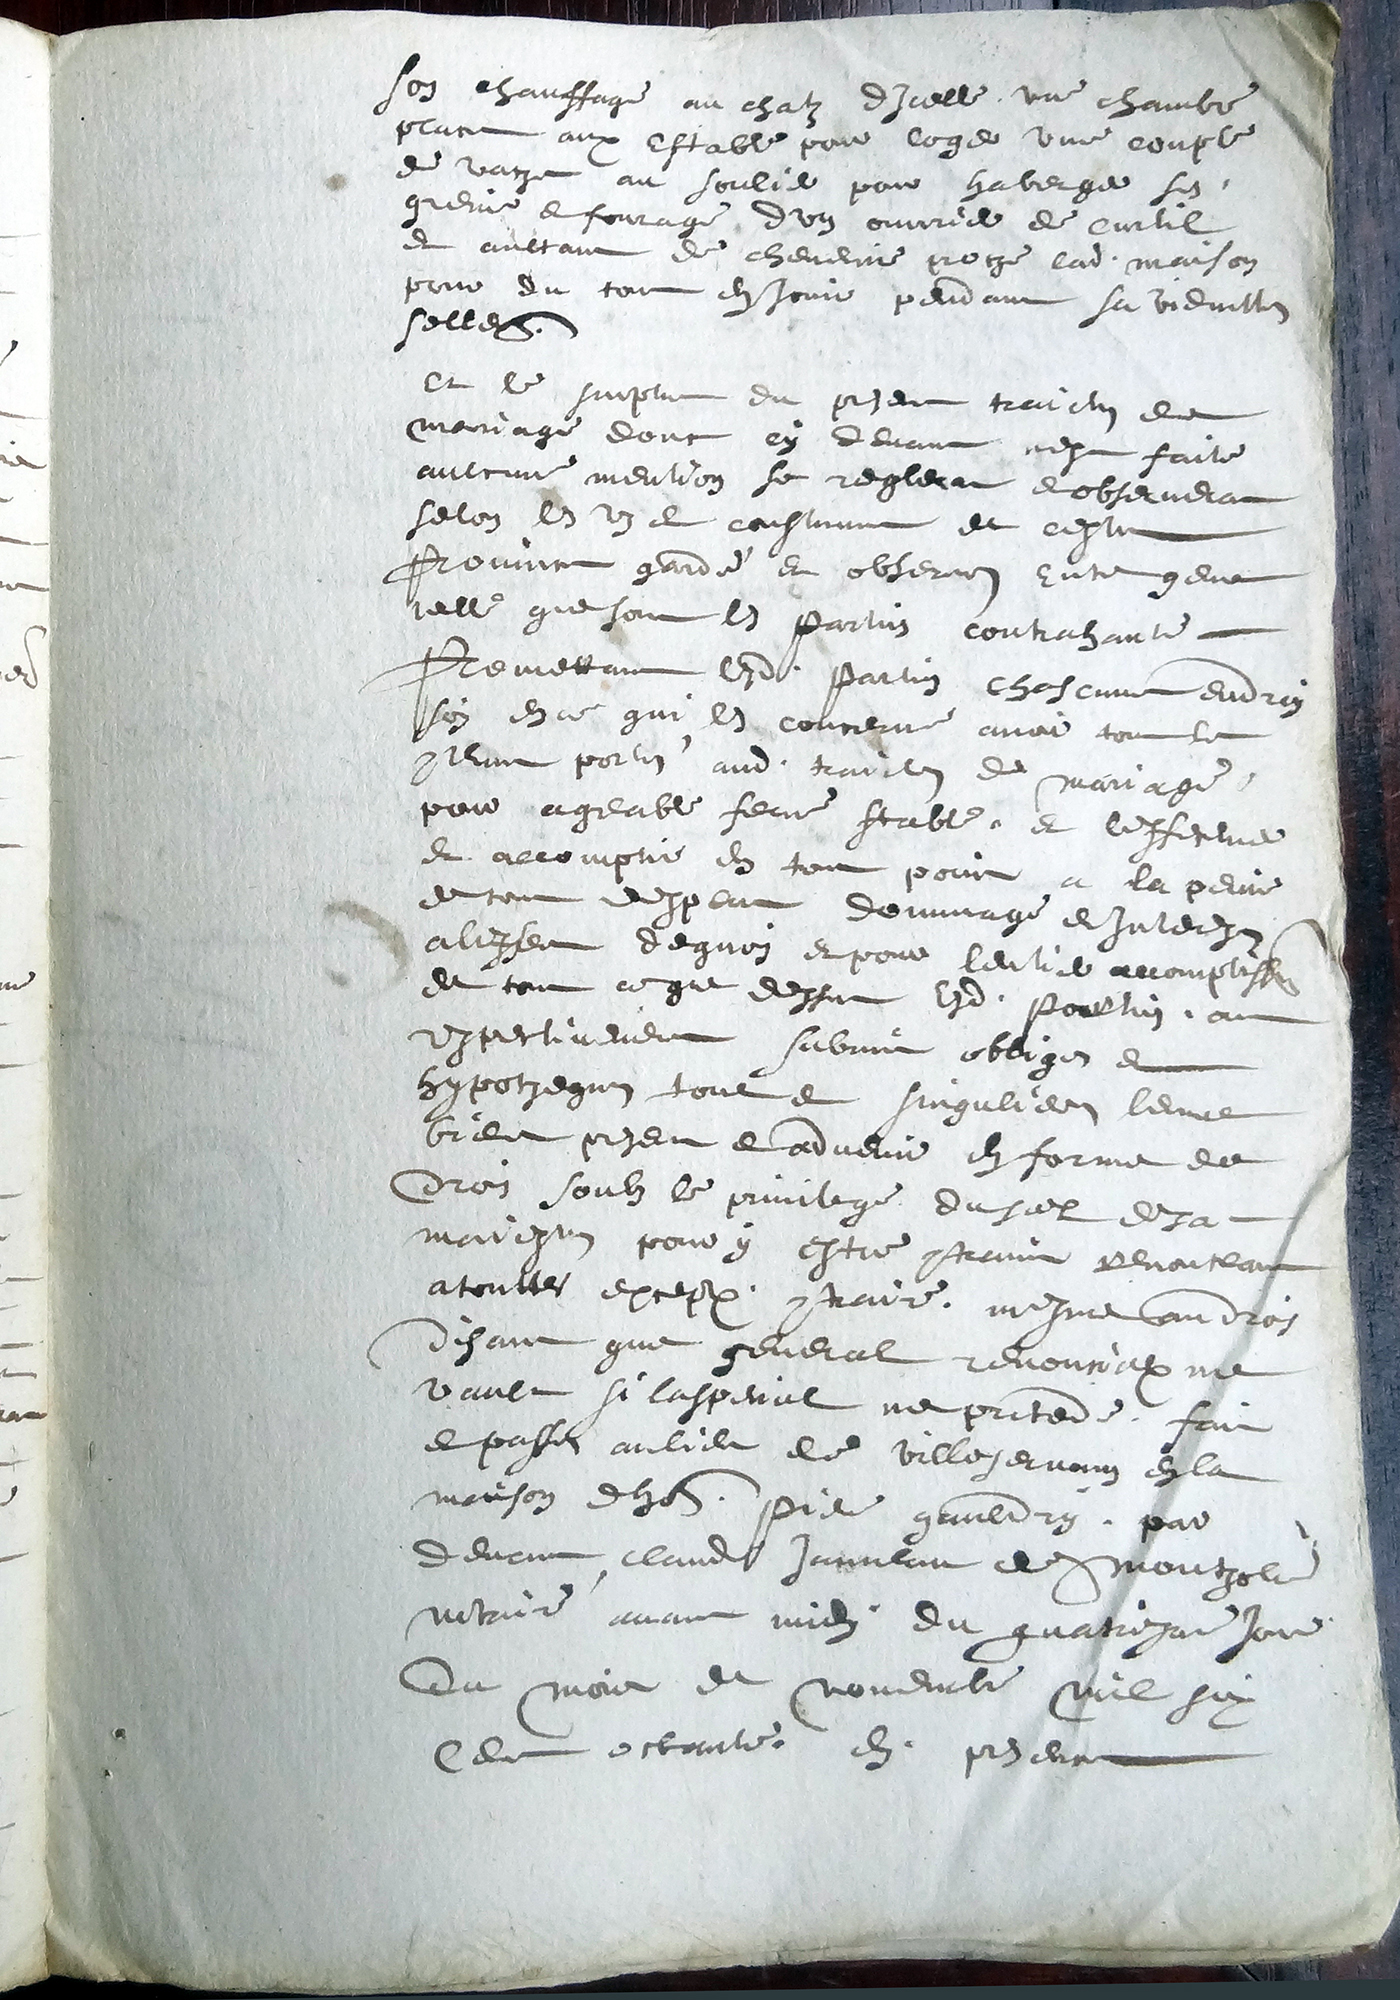 son chauffage au chatz dicelle une chambre
place aux estable pour loger une couple
de vache au soulier pour haberger ses
greine et fourage dun ouvrier de curtil
et aultant de cheneviere proche lad. maison
pour du tout en jouir pendant sa viduitte
seullement.
Et le surplus du present traicte de
mariage dont cy devant nest faite
aulcune mention se reglera et observera
selon les us et coustume de ceste
Province garde et observee entre gens
telle que sont les parties contrahante
Promettant lesd. parties chascune endroit
soy en ce qui les concerne avoir tout le
contenu porte aud. traicte de mariage
pour agreable ferme stable et leffectuer
et accomplir en tout point a la peine
de tout despens dommage et interest
a leffect dequoy et pour lentier accomplissement
de tout ce que dessus lesd. parties ont
respectivement submis obliges et
hypotheques tout et singuliers leurs
biens present et advenir en forme de
droit soubz le privilege du scel de sa
majeste pour y estre contraint renonceant
a touttes except. contraire. mesme au droit
disant que general renonciation ne
vault si la special ne precede. fait
et passe au lieu de villeservine en la
maison dhon. Pierre gauldry. par
devant claude Jannelau de montholie
notaire avant midy du quatriesme jour
Du mois de novembre mil six
Cent octante. en presence